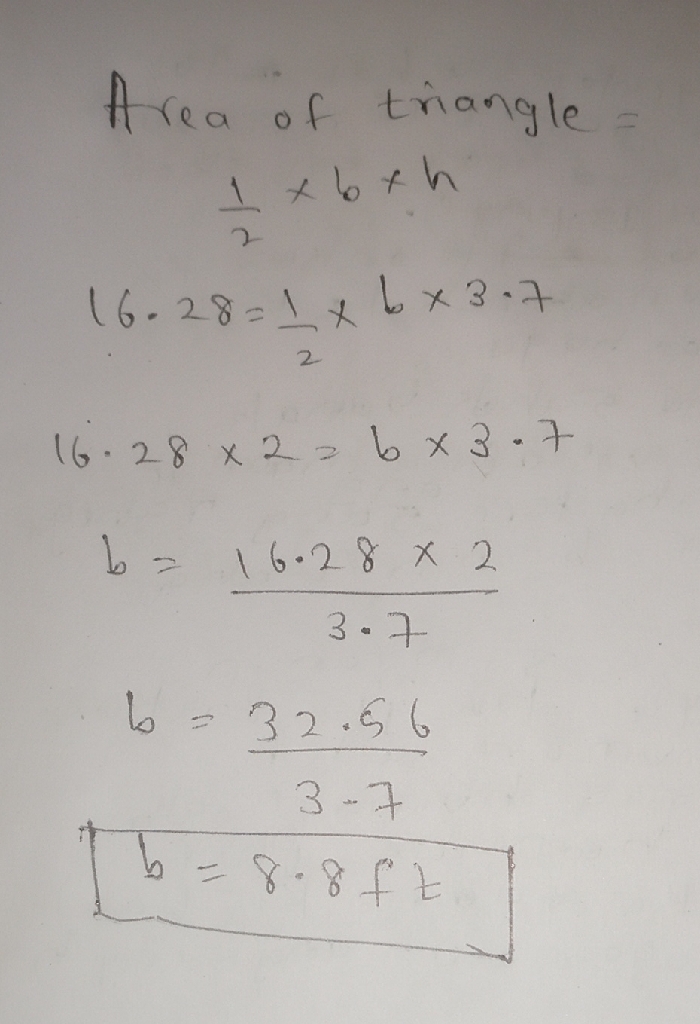 Area of triangle =
1/2 × b × h
16.28 = 1/2 × b × 3.7
16.28 × 2 = b × 3.7
b = 16.28 × 2 / 3.7
b = 32.56 / 3.7
b = 8.8 ft